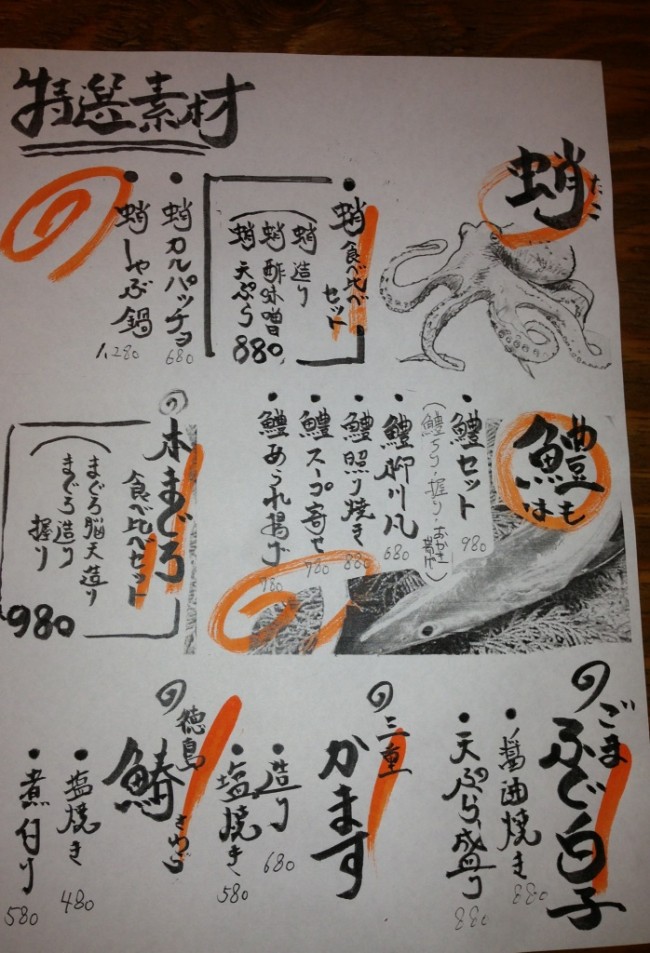 特選素材
蛸
たこ
・蛸食べ比べ
セット
蛸造り
蛸酢味噌
蛸天ぷら
880
・蛸カルパッチョ
680
・蛸しゃぶ鍋
1,280
鱧
はも
・鱧セット
980
・鱧柳川風
680
・鱧照り焼き
880
・鱧スープ寄せ
780
・鱧あられ揚げ
780
本まぐろ
食べ比べセット
まぐろ脳天造り
まぐろ造り
握り
980
ごま
ふぐ白子
・醤油焼き
880
・天ぷら盛り
880
三重
かます
・造り
680
・塩焼き
580
徳島
鰆
さわら
・塩焼き
480
・煮付け
580